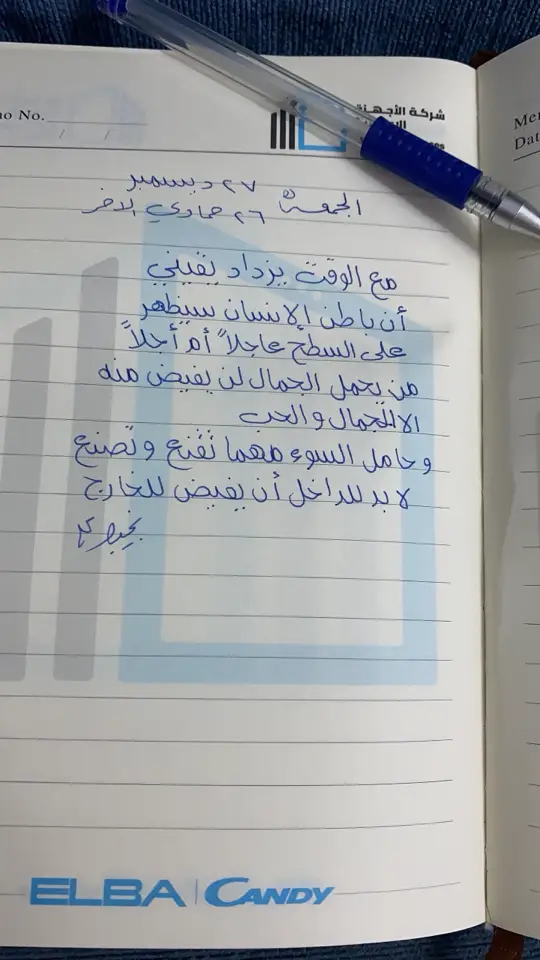 no No.
/ /
شركة الأجهزة
Me
Dat
الجمعة ٢٧ ديسمبر
٢٦ جمادي الاخر
مع الوقت يزداد يقيني
أن باطن الإنسان سيظهر
على السطح عاجلاً أم أجلاً
من يحمل الجمال لن يفيض منه
الا الجمال والحب
وحامل السوء مهما تقنع وتصنع
لابد للداخل أن يفيض للخارج
ELBA | CANDY